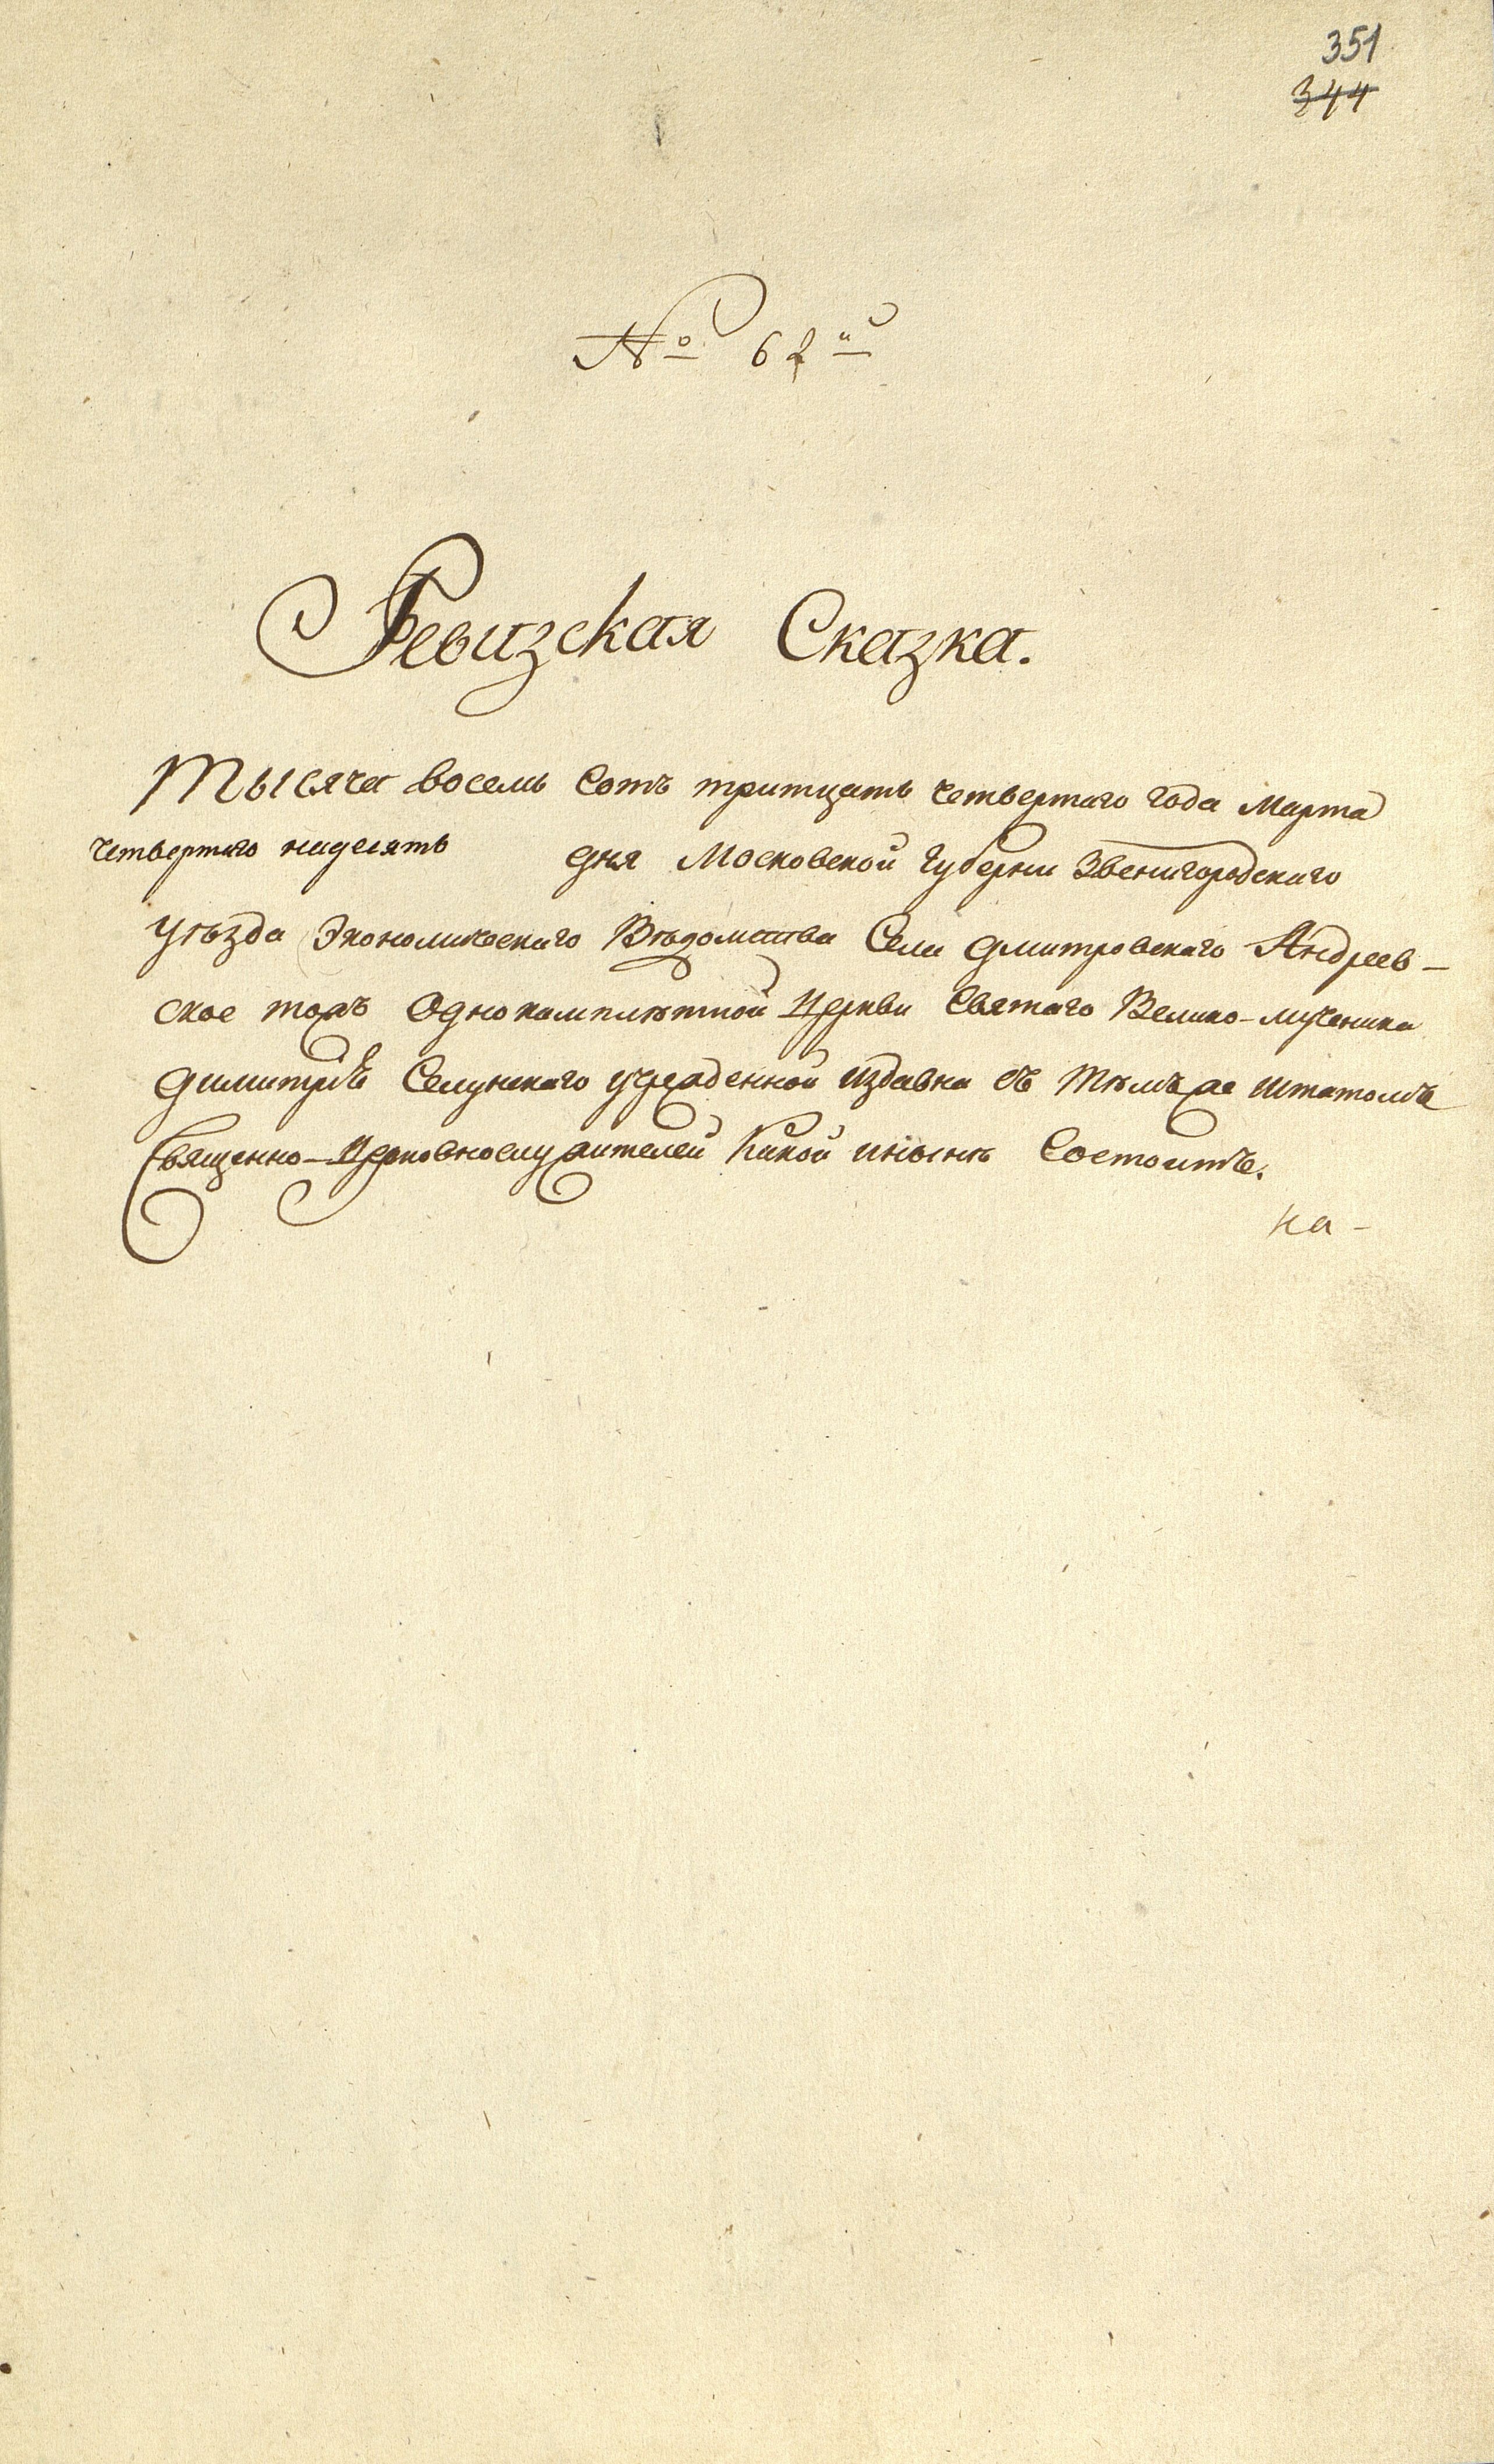 351
344
№ 62й
Ревизская Сказка.
Тысяча восемь Сотъ тритцать четвертаго года Марта
четвертаго надесять дня Московской Губернии Звенигородскаго
Уѣзда Экономическаго Вѣдомства Села Дмитровскаго Андреев-
ское тожъ Однокомплѣтной Церкви Святаго Велико-мученика
Димитрія Селунскаго учрежденной издавна съ тѣмъ же штатомъ
Священно-Церковнослужителей какой инынѣ Состоитъ.
на-